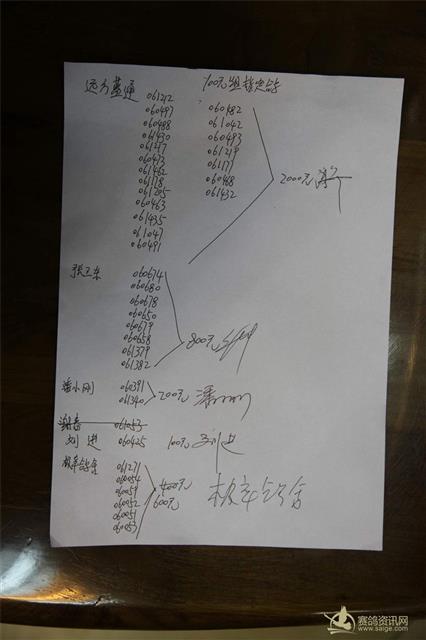 远方蓝通 100元组指定鸽
061212
060497
060488
061430
061217
060473
061462
061178
061205
060463
061435
061047
060491
060482
061042
060493
061219
061171
060468
061432
2000元
张卫东 060674
060680
060678
060650
060679
060658
061379
061382
800元
潘小刚 060391
061340
200元 潘
061053
刘进 060425 100元 刘进
极年鸽舍 061271
060054
060059
060052
060051
060053
400元
600元
极年鸽舍
赛鸽资讯网
www.saige.com